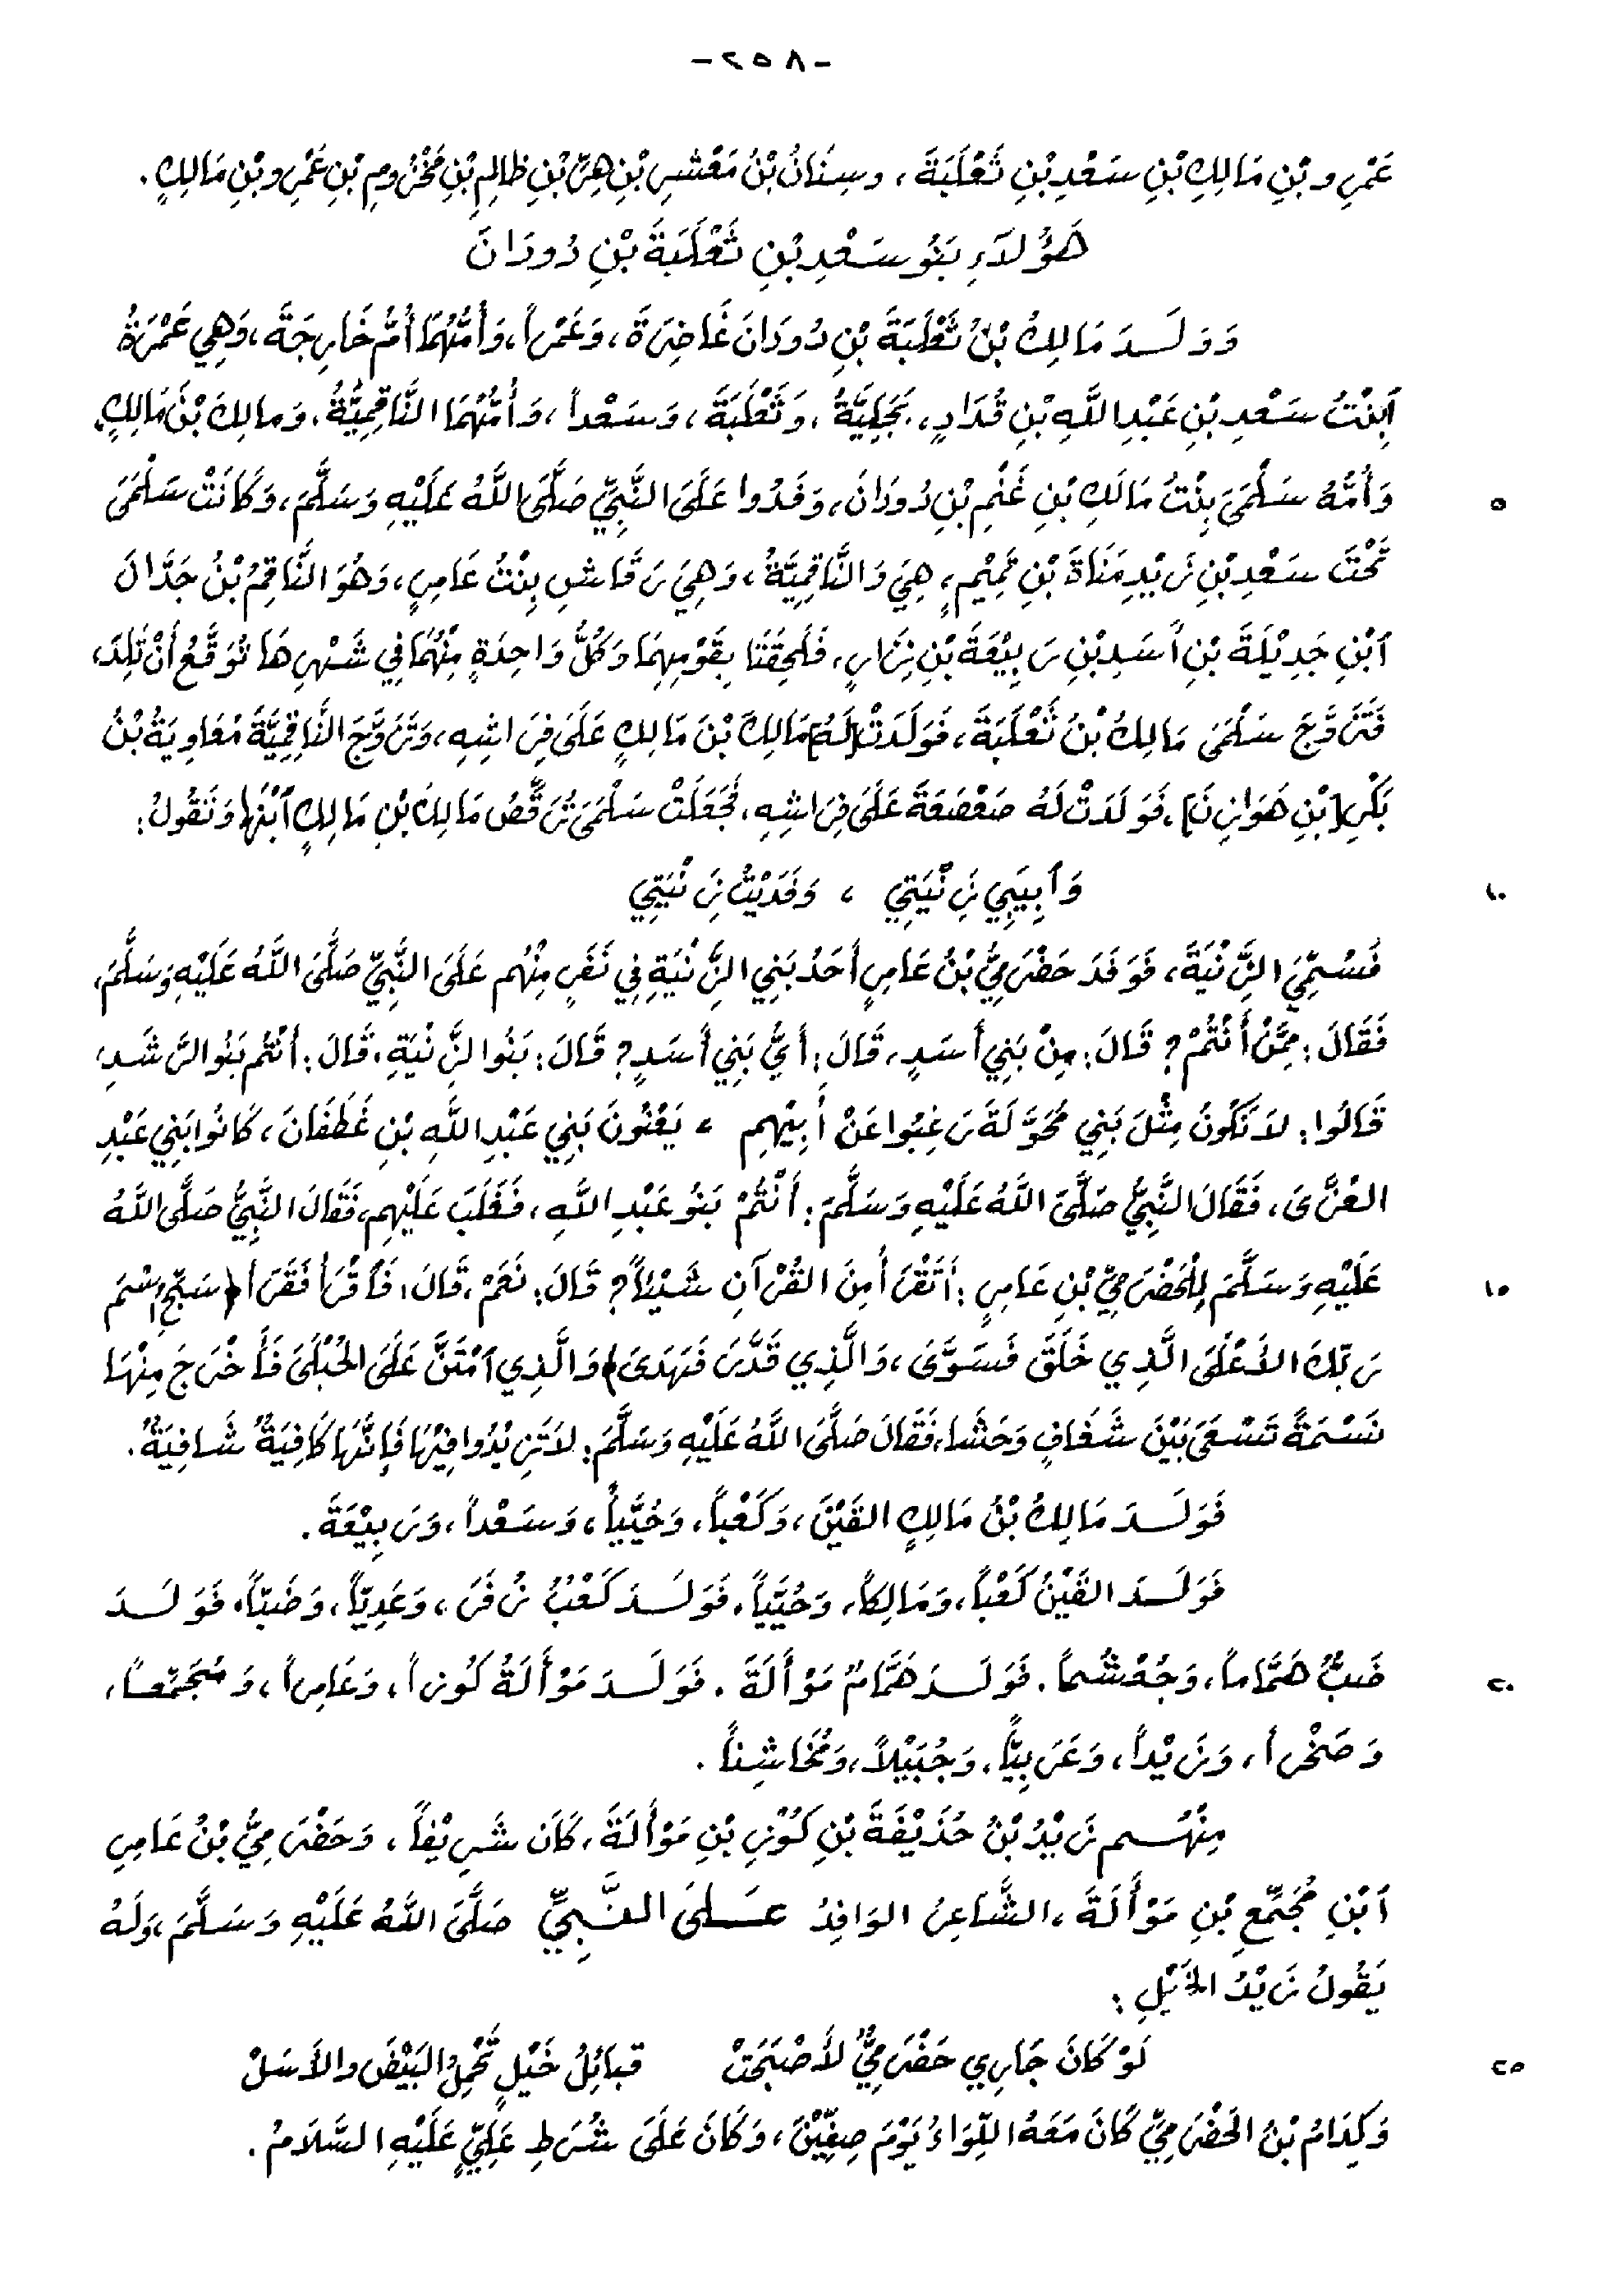 -٢٥٨-
عَمْرِو بْنِ مَالِكِ بْنِ سَعْدِ بْنِ ثَعْلَبَةَ، وسِنَانُ بْنُ مَعْشَرِ بْنِ هِرِّ بْنِ ظَالِمِ بْنِ مَخْزُومِ بْنِ عَمْرِو بْنِ مَالِكٍ.
هَؤُلَاءِ بَنُو سَعْدِ بْنِ ثَعْلَبَةَ بْنِ دُودَانَ
وَوَلَدَ مَالِكُ بْنُ ثَعْلَبَةَ بْنِ دُودَانَ غَاضِرَةَ، وَعَمْراً، وَأُمُّهُمَا أُمُّ خَارِجَةَ، وَهِي عَمْرَةُ
ٱبْنِتُ سَعْدِ بْنِ عَبْدِ اللَّهِ بْنِ قُدَادٍ، بَجَلِيَّةُ، وَثَعْلَبَةَ، وَسَعْداً، وَأُمُّهُمَا النَّاقِمِيَّةُ. وَمالِكَ بْنَ مَالِكٍ،
وَأُمُّهُ سَلْمَىَ بِنْتُ مَالَكِ بْنِ غَنْمِ بْنِ دُودَانَ، وَفَدُوا عَلَىَ النَّبِيِّ صَلَّىَ اللَّهُ عَلَيْهِ وَسَلَّمَ، وَكَانَتْ سَلْمَىَ ٥
تَحْتَ سَعْدِ بْنِ زَيْدِ مَنَاةَ بْنِ تَمِيْمٍ، هِيَ وَالنَّاقِمِيَّةُ، وَهِيَ رَقَاشِ بِنْتُ عَامِرٍ، وَهُوَ النَّاقِمُ بْنُ جَدَّانَ
ٱبْنِ جَدِيْلَةَ بْنِ أَسَدِ بْنِ رَبِيْعَةَ بْنِ نِزَارٍ، فَلَحِقَتَا بِقَوْمِهِمَا وَكُلُّ وَاحِدَةٍ مِنْهُمَا فِي شَهْرِهَا تُوَقَّعُ أَنْ تَلِدَ،
فَتَزَوَّجَ سَلْمَىَ مَالِكُ بْنُ ثَعْلَبَةَ، فَوَلَدَتْ [لَهُ] مَالِكَ بْنَ مَالِكٍ عَلَىَ فِرَاشِهِ، وَتَزَوَّجَ النَّاقِمِيَّةَ مُعَاوِيَةُ بْنُ
بَكْرِ [بْنِ هَوَازِنَ]، فَوَلَدَتْ لَهُ صَعْصَعَةَ عَلَىَ فِرَاشِهِ، فَجَعَلَتْ سَلْمَىَ تُرَقِّصُ مَالِكَ بْنِ مَالِكٍ ٱبْنَهَا وَتَقُولُ:
وَٱبِيَبِي زِنْيَتِي ، وَفَدَيْتُ زِنْيَتِي ١٠
فَسُمِّيَ الزِّنْيَةَ، فَوَفَدَ حَضْرَمِيُّ بْنُ عَامِرٍ أَحَدُ بَنِي الزِّنْيَةِ فِي نَفَرٍ مِنْهُم عَلَىَ النَّبِيِّ صَلَّىَ اللَّهُ عَلَيْهِ وَسَلَّمَ،
فَقَالَ: مِمَّنْ أَنْتُمْ؟ قَالَ: مِنْ بَنِي أَسَدٍ، قَالَ: أَيُّ بَنِي أَسَدٍ؟ قَالَ: بَنُوا الزِّنْيَةِ، قَالَ: أَنْتُم بَنُو الرَّشَدِ،
قَالُوا: لاَ نَكُونُ مِثْلَ بَنِي مُحَوَّلَةَ رَغِبُوا عَنْ أَبِيْهِم ، يَعْنُونَ بَنِي عَبْدِ اللَّهِ بْنِ غَطَفَانَ، كَانُوا بَنِي عَبْدِ
العُزَّى، فَقَالَ النَّبِيُّ صَلَّىَ اللَّهُ عَلَيْهِ وَسَلَّمَ: أَنْتُمْ بَنُو عَبْدِ اللَّهِ، فَغَلَبَ عَلَيْهِم، فَقَالَ النَّبِيُّ صَلَّىَ اللَّهُ
عَلَيْهِ وَسَلَّمَ لِلْحَضْرَمِيِّ بْنِ عَامِرٍ: أَتَقْرَأُ مِنَ القُرْآنِ شَيْئاً؟ قَالَ: نَعَمْ، قَالَ: فَٱقْرَأْ فَقَرَأَ ﴿سَبِّحِ اسْمَ ١٥
رَبِّكَ الأَعْلَىَ الَّذِي خَلَقَ فَسَوَّىَ، وَالَّذِي قَدَّرَ فَهَدَىَ﴾ وَالَّذِي ٱمْتَنَّ عَلَىَ الحُبْلَىَ فَأَخْرَجَ مِنْهَا
نَسْمَةً تَسْعَىَ بَيْنَ شَغَافٍ وَحَشَا، فَقَالَ صَلَّىَ اللَّهُ عَلَيْهِ وَسَلَّمَ: لاَ تَزِيْدُوا فِيْهَا فَإِنَّهَا كَافِيَةٌ شَافِيَةٌ.
فَوَلَدَ مَالِكُ بْنُ مَالِكٍ القَيْنَ، وَكَعْباً، وَحُيَيّاً، وَسَعْداً، وَرَبِيْعَةَ.
فَوَلَدَ القَيْنُ كَعْباً، وَمَالِكاً، وَحُيَيّاً. فَوَلَدَ كَعْبُ نُ فَرَ، وَعَدِيّاً، وَضَبّاً. فَوَلَدَ
ضَبٌّ هَمَّاماً، وَجُعْشُماً. فَوَلَدَ هَمَّامٌ مَوْأَلَةَ. فَوَلَدَ مَوْأَلَةُ كُوزاً، وَعَامِراً، وَمُجَمِّعاً، ٢٠
وَصَخْراً، وَزَيْداً، وَعَرَبِيّاً، وَجُبَيْلاً، وَمُخَاشِناً.
مِنْهُم زَيْدُ بْنُ حُذَيْفَةَ بْنِ كُوْزِ بْنِ مَوْأَلَةَ، كَانَ شَرِيْفاً، وَحَضْرَمِيُّ بْنُ عَامِرِ
ٱبْنِ مُجَمِّعِ بْنِ مَوْأَلَةَ، الشَّاعِرُ الوَافِدُ عَلَىَ النَّبِيِّ صَلَّىَ اللَّهُ عَلَيْهِ وَسَلَّمَ، وَلَهُ
يَقُولُ زَيْدُ الخَيْلِ:
لَوْ كَانَ جَارِي حَضْرَمِيٌّ لأَصْبَحَتْ قبائِلُ خَيْلٍ تَحْمِلُ البَيْضَ والأَسَلْ ٢٥
وَكِدَامُ بْنُ الحَضْرَمِيِّ كَانَ مَعَهُ اللِّوَاءُ يَوْمَ صِفِّيْنَ، وَكَانَ عَلَىَ شُرَطِ عَلِيٍّ عَلَيْهِ السَّلَامُ.